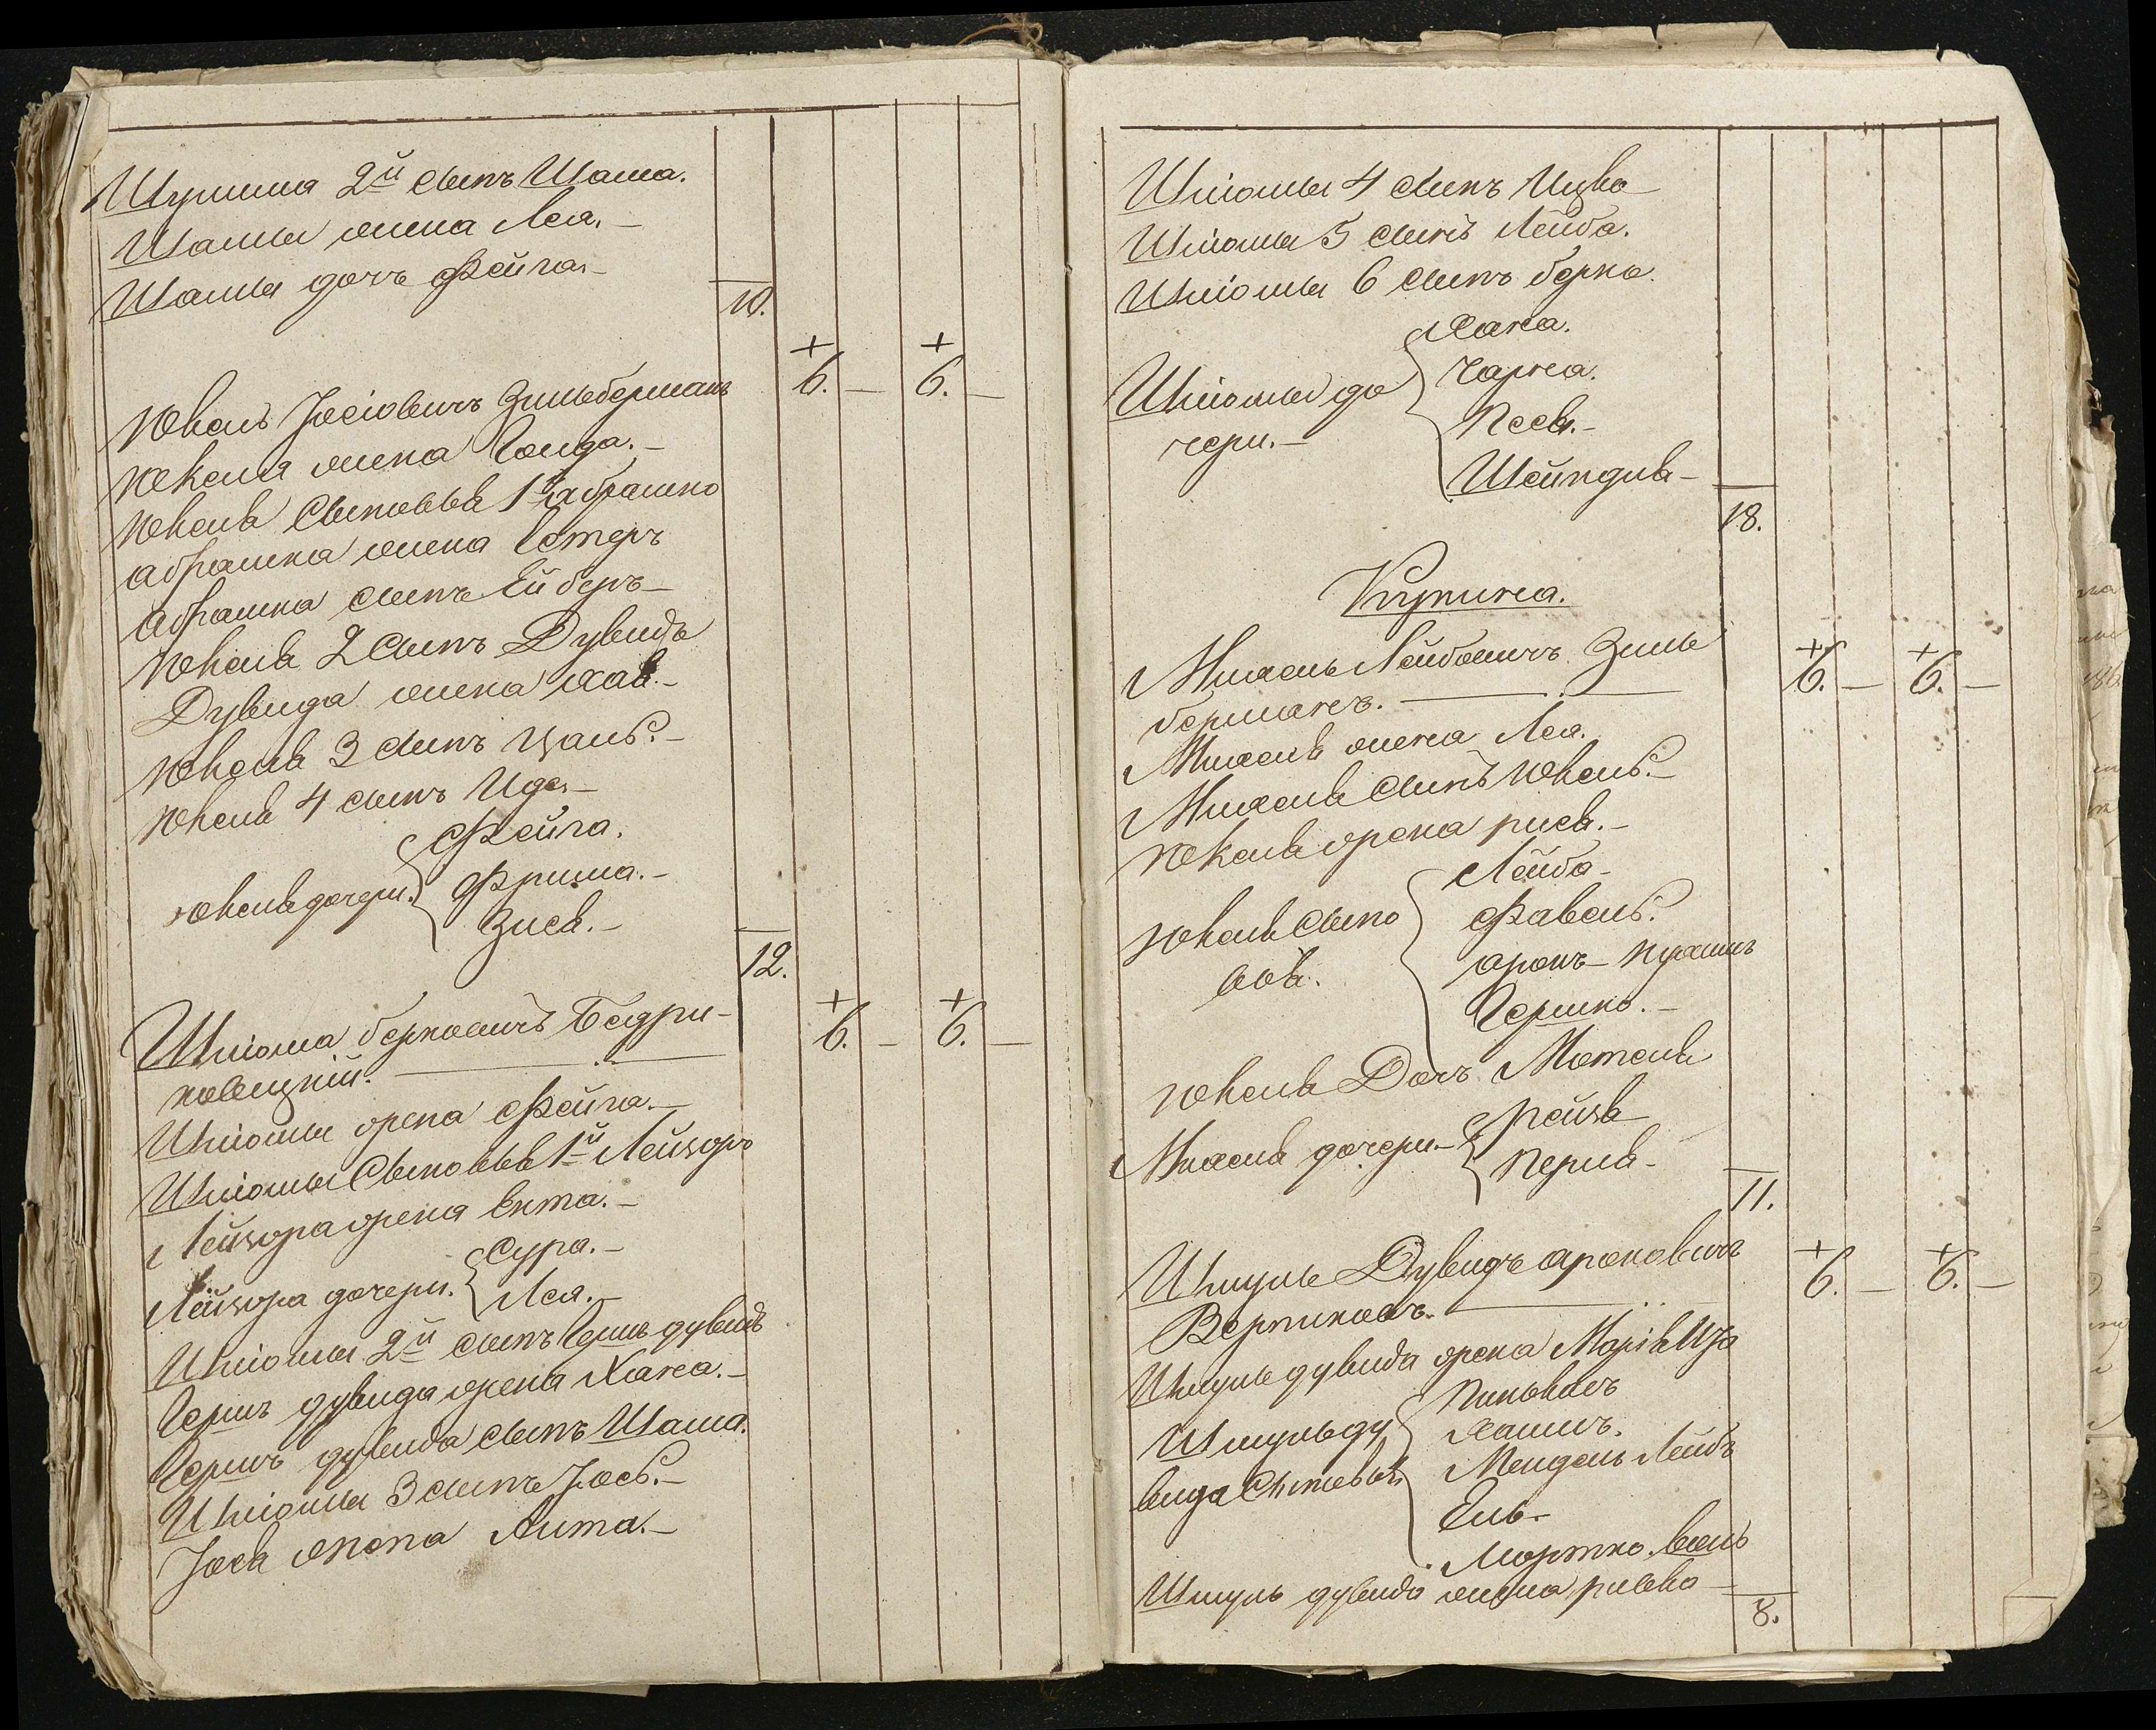 Шулима 2й сынъ Шама.
Шамы жена Лея.-
Шамы дочь Фейга.-
10.
Юкель Іосіовичъ Зильберманъ 6.- 6.-
Юкеля жена Голда.-
Юкеля Сыновья 1й абрашко
абрашка жена Естеръ
абрашка сынъ Ей беръ-
Юкеля 2 Сынъ Дувидъ
Дувида жена хая.-
Юкеля 3 сынъ
Юкеля 4 сынъ Ицо-
Юкеля дочери. Фейга.
Фрима.-
Зися.-
12.
Шліома берковичъ Бедри- 6.- 6.-
ковецкій.-
Шліомы жена Фейга.-
Шліомы Сыновья 1й Лейзоръ
Лейзора жена Ента.-
Лейзора дочери. Сура.-
Лея.-
Шліомы 2й сынъ Гершъ дувидъ
Гершъ дувида жена Хана.-
Гершъ дувида сынъ Шама.
Шліомы 3 сынъ Іось.-
Іося жена
Шліомы 4 сынъ Ицко
Шліомы 5 сынъ Лейба.
Шліомы 6 сынъ берко.
Шліомы до Хана.
чери.- Чарна.
Песя.-
Шейндля-
18.
Купина.
Михель Лейбовичъ Зиль 6.- 6.-
берманъ.-
Михеля жена Лея.
Михеля Сынъ Юкель.-
Юкеля жена рися.-
Юкеля Сыно Лейба-
вья. Фавель.
аронъ-
Гершко.-
Юкеля Дочь Мотеля
Михеля дочери.- Рейзя
Перля-
11.
Шмуль Дувидъ ароновичъ 6.- 6.-
Верниковъ.-
Шмуль дувида жена Марія
Шмуль ду Пиньхосъ
вида Сыновья Хаимъ.
Мендель Лейбъ
Ель-
Мортко.
Шмуль дувида жена ривко-
8.